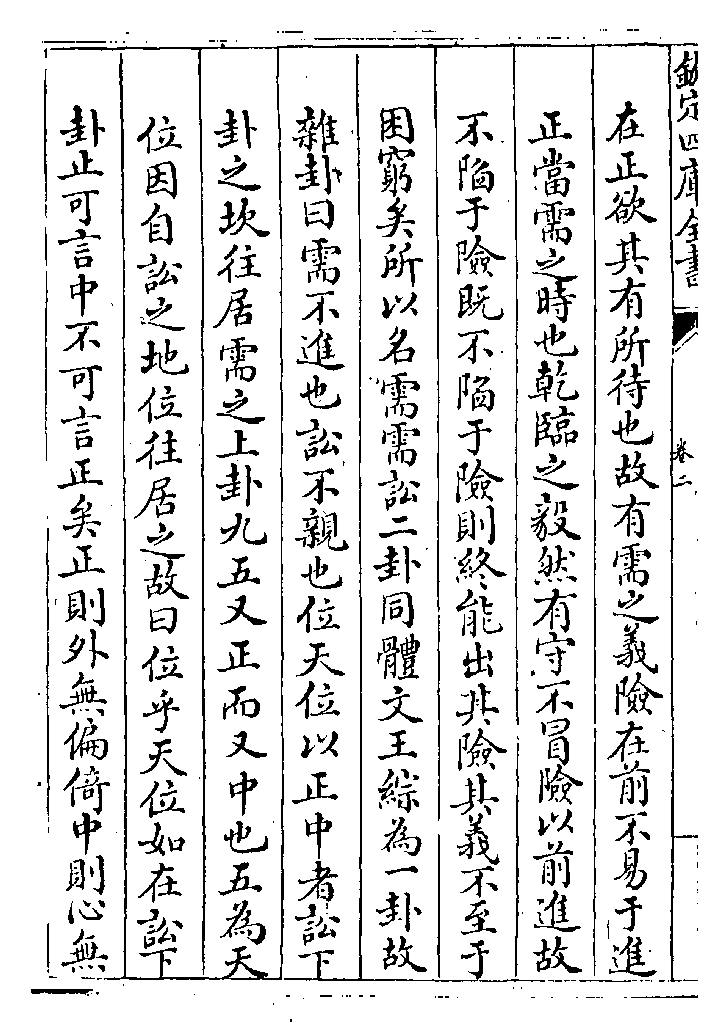 欽定四庫全書
卷二
在正欲其有所待也故有需之義險在前不易于進
正當需之時也乾臨之毅然有守不冒險以前進故
不陷于險既不陷于險則終能出其險其義不至于
困窮矣所以名需需訟二卦同體文王綜為一卦故
雜卦曰需不進也訟不親也位天位以正中者訟下
卦之坎往居需之上卦九五又正而又中也五為天
位因自訟之地位往居之故曰位乎天位如在訟下
卦止可言中不可言正矣正則外無偏倚中則心無